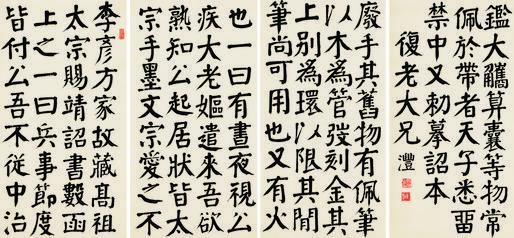 李彥方家故藏高祖
太宗賜靖詔書數函
上之一曰兵事節度
皆付公吾不從中治
也一曰有晝夜視公
疾大老嫗遣來吾欲
熟知公起居狀皆太
宗手墨文宗愛之不
廢手其舊物有佩筆
以木為管弢刻金其
上別為環以限其間
筆尚可用也又有火
鑑大觿算囊等物常
佩於帶者天子悉畱
禁中又勅摹詔本
復老大兄 灃